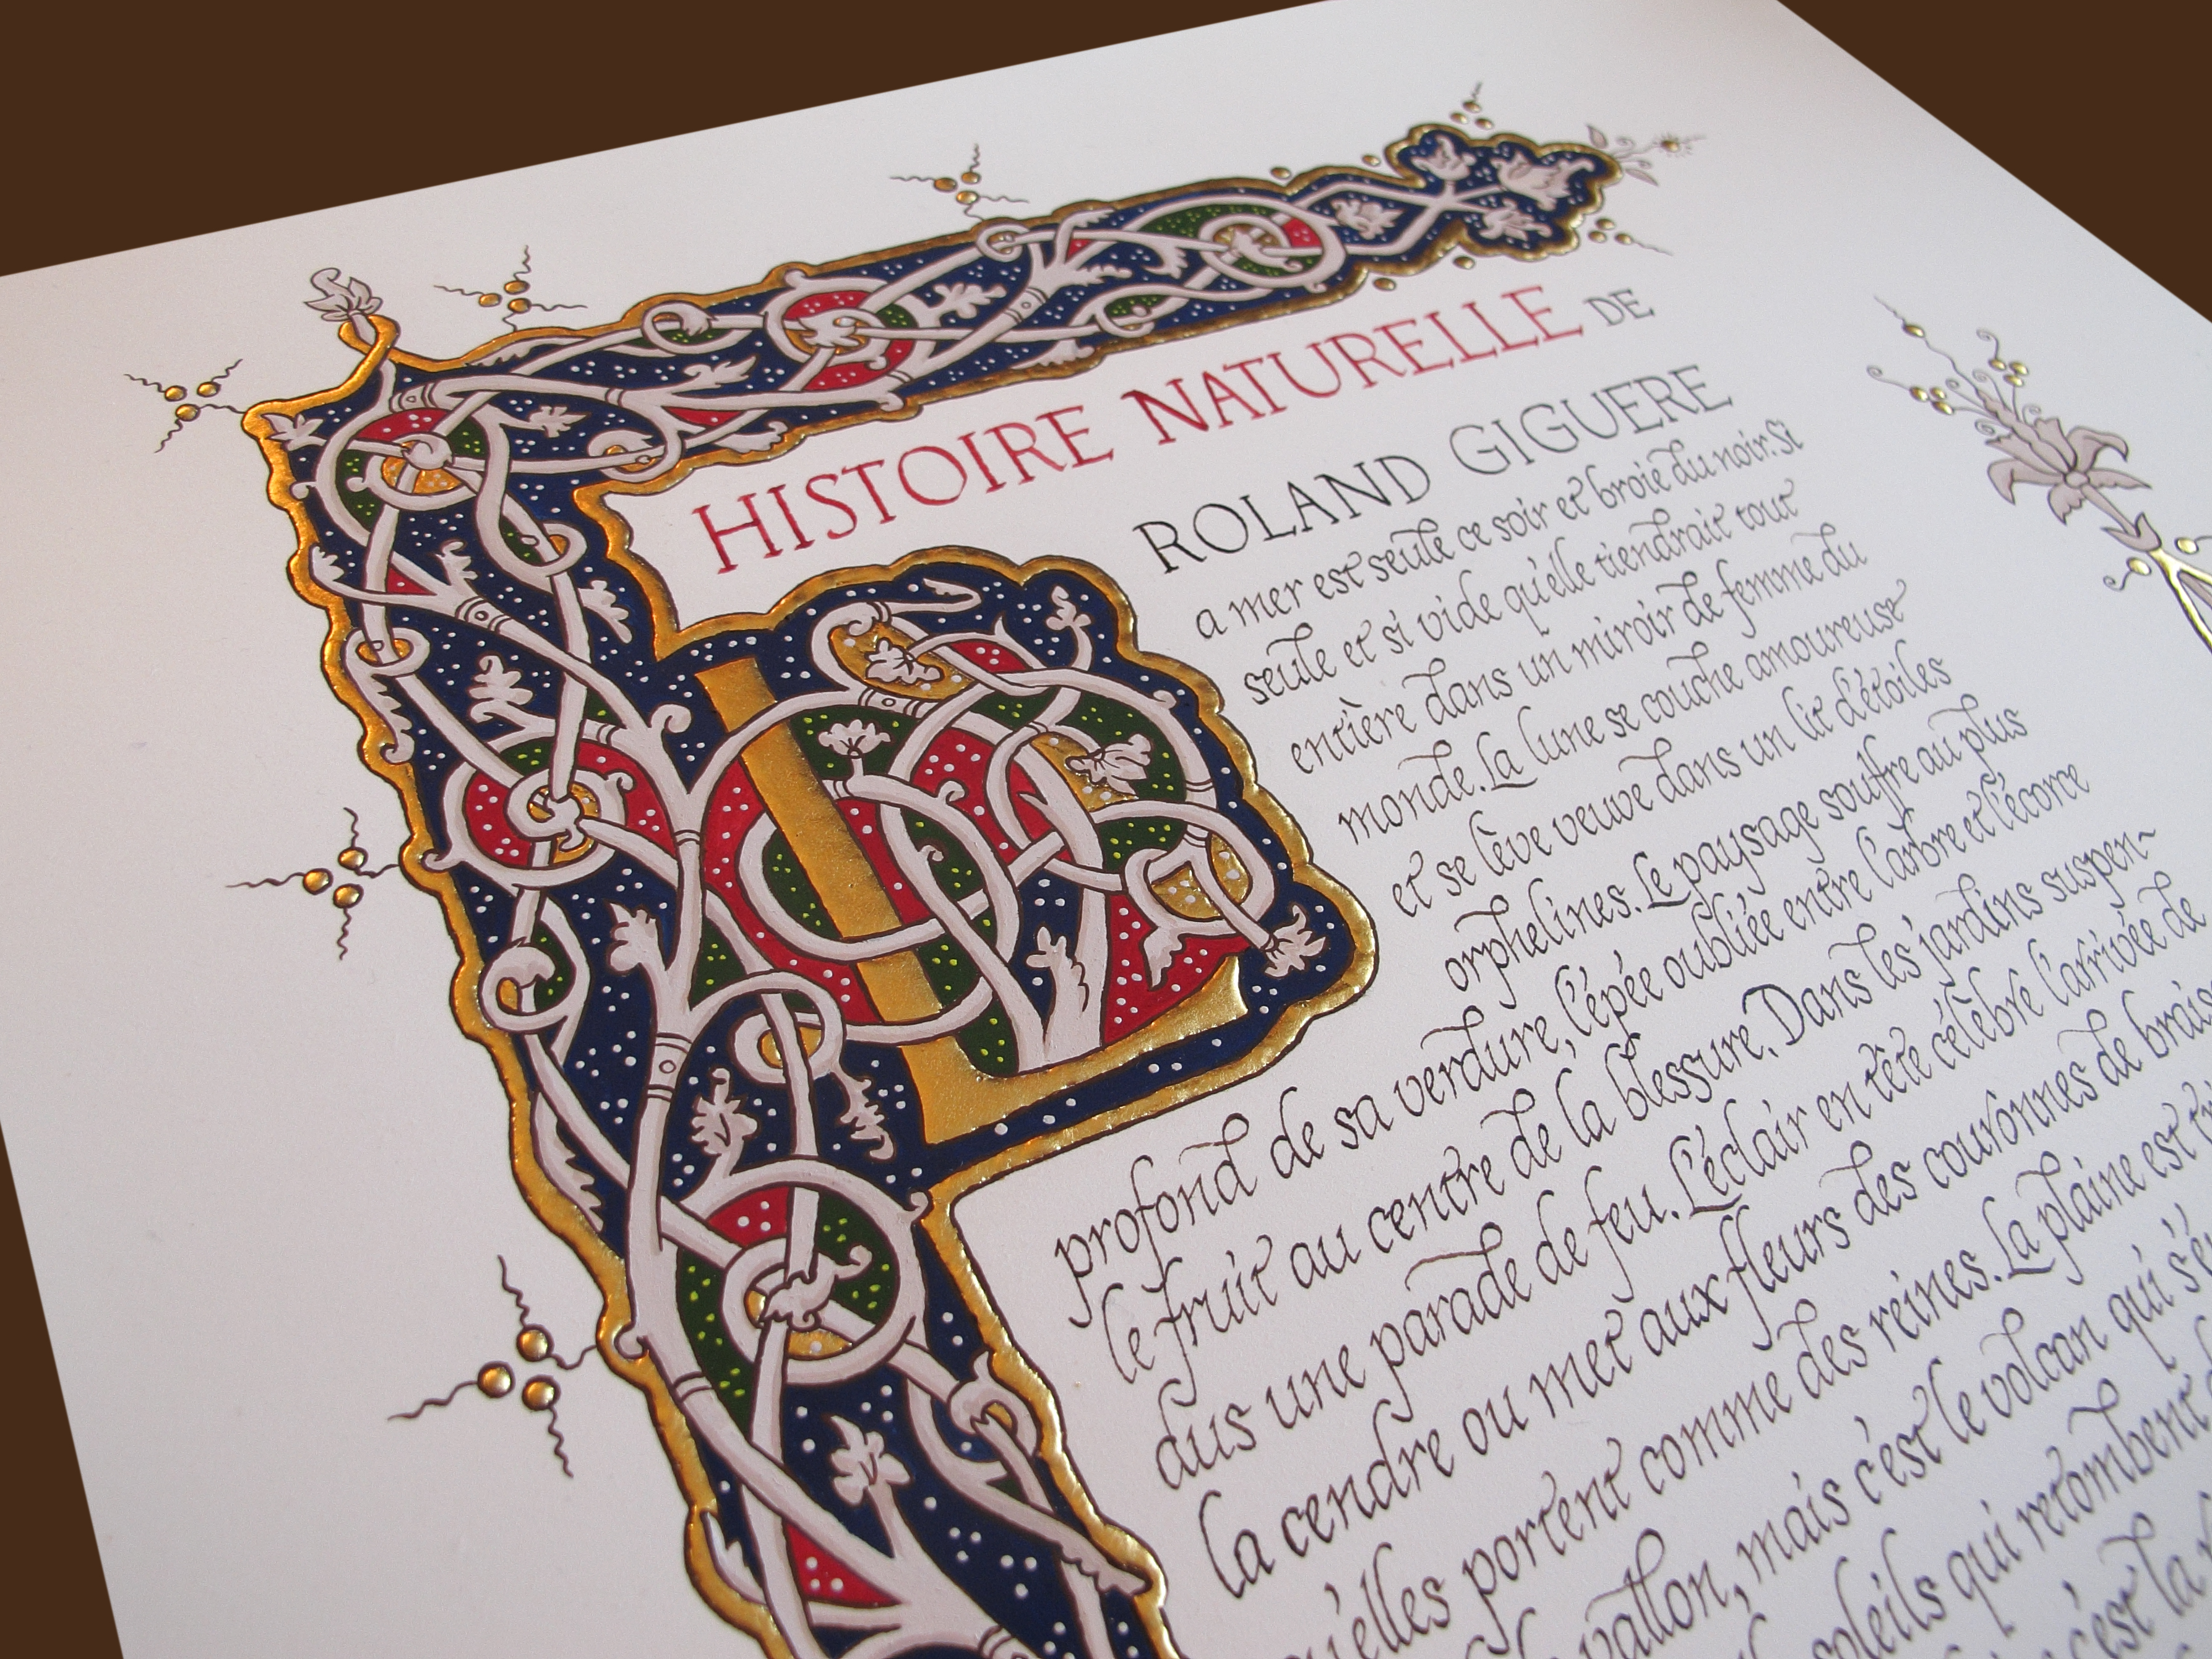 HISTOIRE NATURELLE DE
ROLAND GIGUERE
La mer est seule ce soir et broie du noir. Si
seule et si vide qu'elle tiendrait tout
entière dans un miroir de femme du
monde. La lune se couche amoureuse
et se lève veuve dans un lit d'étoiles
orphelines. Le paysage souffre au plus
profond de sa verdure, l'épée oubliée entre l'arbre et l'écorce
le fruit au centre de la blessure. Dans les jardins suspen-
dus une parade de feu. L'éclair en tête célèbre l'arrivée de
la cendre ou met aux fleurs des couronnes de
qu'elles portent comme des reines. La plaine est
vallon, mais c'est le volcan qui
soleils qui retombent
c'est la